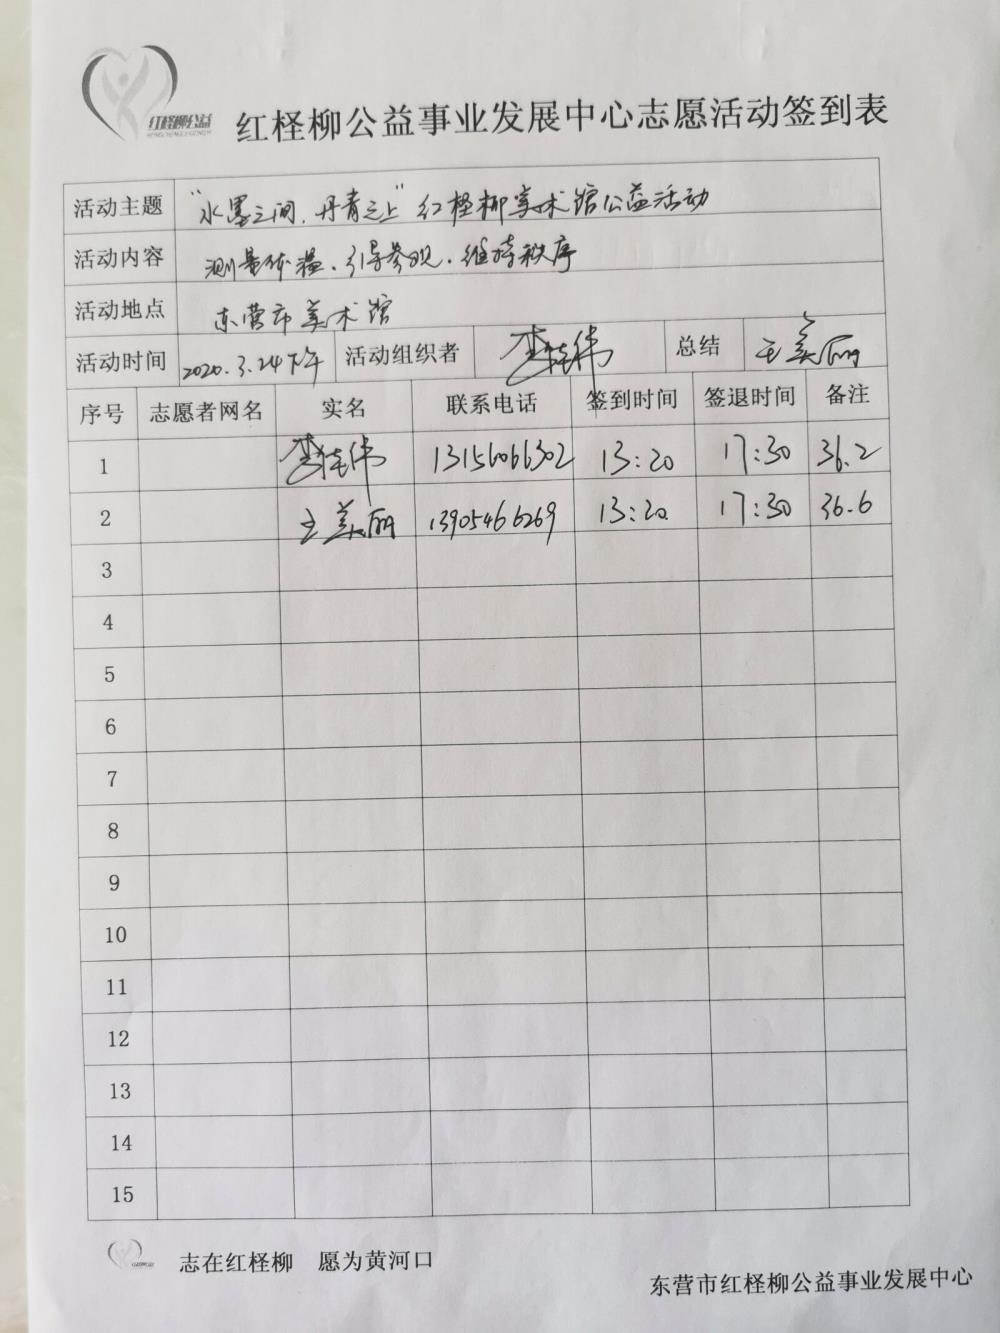 红柽柳公益
红柽柳公益事业发展中心志愿活动签到表
活动主题 “水墨之间，丹青之上”红柽柳美术馆公益活动
活动内容 测量体温、引导参观、维持秩序
活动地点 东营市美术馆
活动时间 2020.3.24下午 活动组织者 李 伟 总结 王美丽
序号 志愿者网名 实名 联系电话 签到时间 签退时间 备注
1 李 伟 13156066302 13:20 17:30 36.2
2 王美丽 13905466269 13:20 17:30 36.6
3
4
5
6
7
8
9
10
11
12
13
14
15
志在红柽柳 愿为黄河口
东营市红柽柳公益事业发展中心